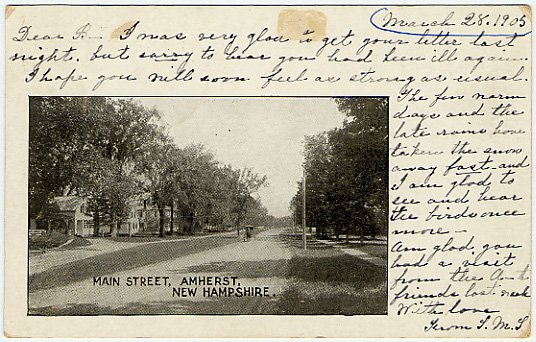 March 28. 1905
Dear A— I was very glad to get your letter last
night, but sorry to hear you had been ill again.
I hope you will soon feel as strong as usual.
The few warm
days and the
late rains have
taken the snow
away fast and
I am glad to
see and hear
the birds once
more —
Am glad you
had a visit
from the
friends last week
With love
From S. M. S
MAIN STREET, AMHERST,
NEW HAMPSHIRE.